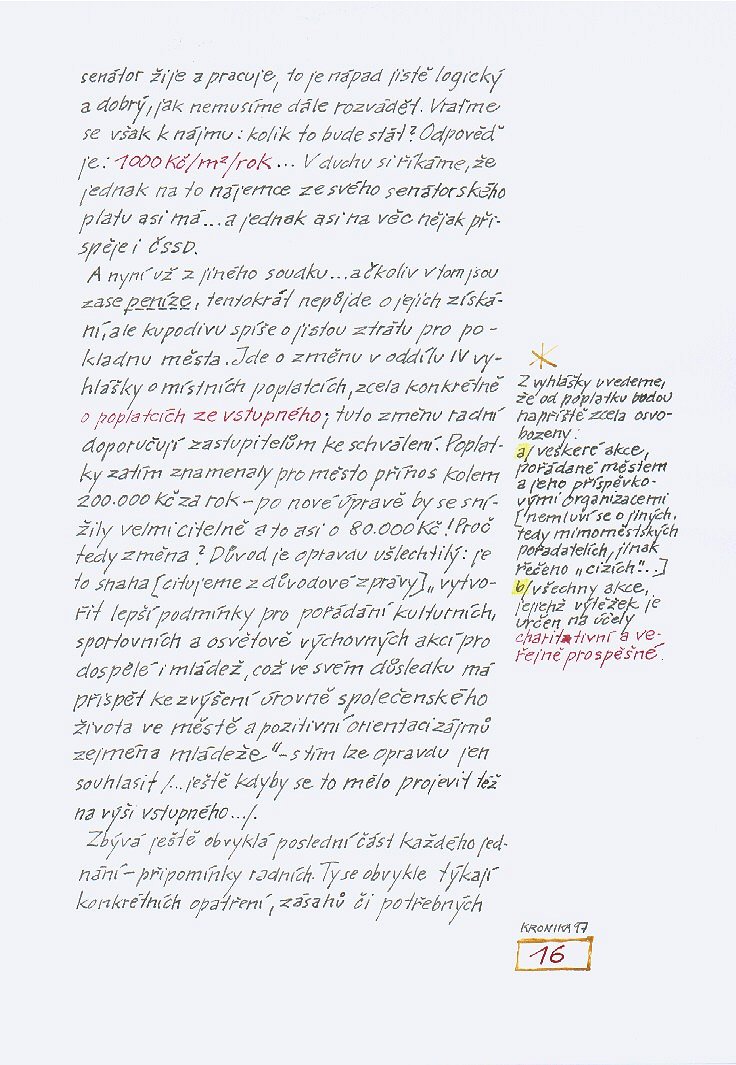 senátor žije a pracuje, to je nápad jistě logický
a dobrý, jak nemusíme dále rozvádět. Vraťme
se však k nájmu: kolik to bude stát? Odpověď
je: 1000 Kč/m²/rok... V duchu si říkáme, že
jednak na to nájemce ze svého senátorského
platu asi má... a jednak asi na věc nějak při-
spěje i ČSSD.
A nyní už z jiného soudku... ačkoliv v tom jsou
zase peníze, tentokrát nepůjde o jejich získá-
ní, ale kupodivu spíše o jistou ztrátu pro po-
kladnu města. Jde o změnu v oddílu IV vy-
hlášky o místních poplatcích, zcela konkrétně
o poplatcích ze vstupného; tuto změnu radní
doporučují zastupitelům ke schválení. Poplat-
ky zatím znamenaly pro město přínos kolem
200.000 Kč za rok - po nové úpravě by se sní-
žily velmi citelně a to asi o 80.000 Kč! Proč
tedy změna? Důvod je opravdu ušlechtilý: je
to snaha [citujeme z důvodové zprávy] „vytvo-
řit lepší podmínky pro pořádání kulturních,
sportovních a osvětově výchovných akcí pro
dospělé i mládež, což ve svém důsledku má
přispět ke zvýšení úrovně společenského
života ve městě a pozitivní orientaci zájmů
zejména mládeže" - s tím lze opravdu jen
souhlasit /...ještě kdyby se to mělo projevit též
na výši vstupného.../.
Zbývá ještě obvyklá poslední část každého jed-
nání - připomínky radních. Ty se obvykle týkají
konkrétních opatření, zásahů či potřebných
Z vyhlášky uvedeme,
že od poplatku budou
napříště zcela osvo-
bozeny:
a/ veškeré akce,
pořádané městem
a jeho příspěvko-
vými organizacemi
[nemluví se o jiných,
tedy mimoměstských
pořadatelích, jinak
řečeno „cizích"...]
b/ všechny akce,
jejichž výtěžek je
určen na účely
charitativní a ve-
řejně prospěšné.
KRONIKA 97
16